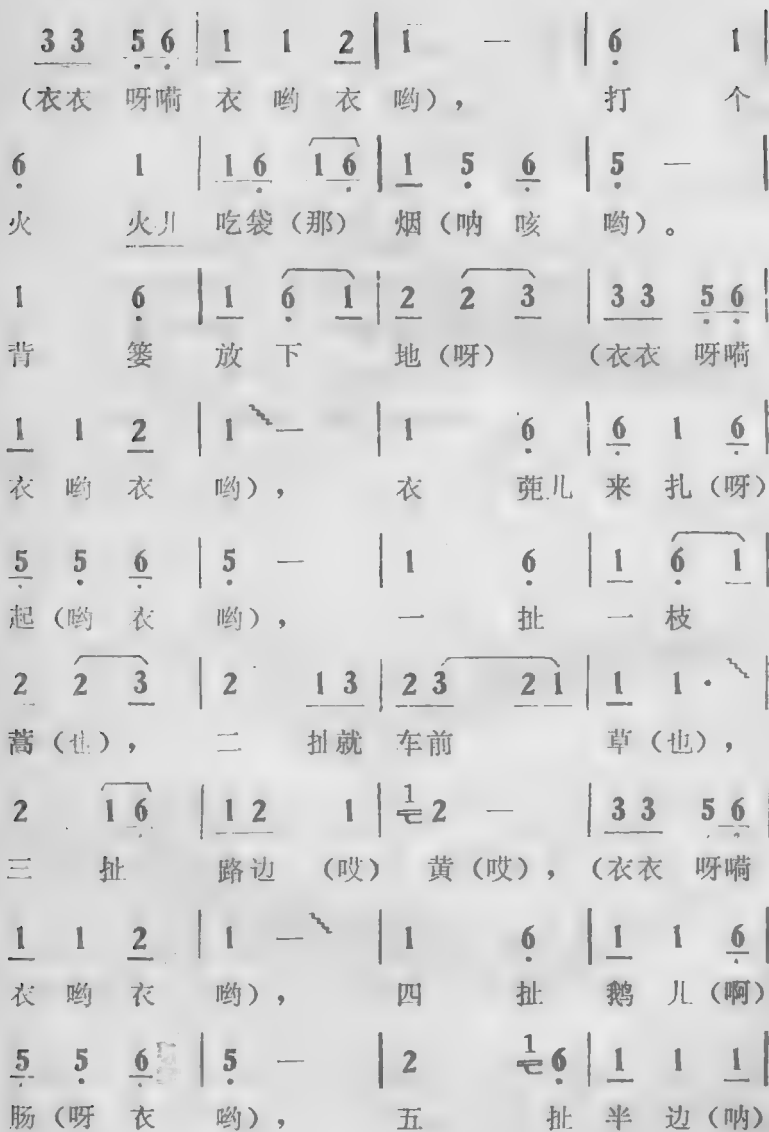 3 3 5 6 | 1 1 2 | 1 — | 6 1
（衣衣 呀嗬 衣 哟 衣 哟）， 打 个
6 1 | 1 6 1 6 | 1 5 6 | 5 —
火 火儿 吃袋（那） 烟（呐 咳 哟）。
1 6 | 1 6 1 | 2 2 3 | 3 3 5 6 |
背 篓 放 下 地（呀） （衣衣 呀嗬
1 1 2 | 1 — | 1 6 | 6 1 6
衣 哟 衣 哟）， 衣 蔸儿 来 扎（呀）
5 5 6 | 5 — | 1 6 | 1 6 1
起（哟 衣 哟）， 一 扯 一 枝
2 2 3 | 2 1 3 | 2 3 2 1 | 1 1 ·
蒿（也）， 二 扯就 车前 草（也），
2 1 6 | 1 2 1 | 1 2 — | 3 3 5 6
三 扯 路边 （哎） 黄（哎），（衣衣 呀嗬
1 1 2 | 1 — | 1 6 | 1 1 6
衣 哟 衣 哟）， 四 扯 鹅 儿（啊）
5 5 6 | 5 — | 2 1 6 | 1 1 1
肠（呀 衣 哟）， 五 扯 半 边（呐）